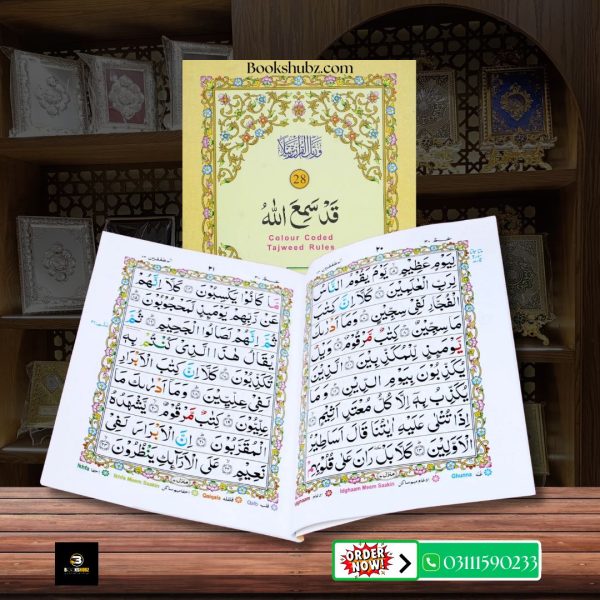 Bookshubz.com
28
قَدْ سَمِعَ اللّٰهُ
Colour Coded
Tajweed Rules
٢٠
لِيَوْمٍ عَظِيْمٍ يَّوْمَ يَقُوْمُ النَّاسُ
لِرَبِّ الْعٰلَمِيْنَ كَلَّاۤ اِنَّ كِتٰبَ
الْفُجَّارِ لَفِيْ سِجِّيْنٍ وَمَاۤ اَدْرٰىكَ
مَا سِجِّيْنٌ كِتٰبٌ مَّرْقُوْمٌ وَيْلٌ
يَّوْمَئِذٍ لِّلْمُكَذِّبِيْنَ الَّذِيْنَ
يُكَذِّبُوْنَ بِيَوْمِ الدِّيْنِ وَمَا
يُكَذِّبُ بِهٖۤ اِلَّا كُلُّ مُعْتَدٍ اَثِيْمٍ
اِذَا تُتْلٰى عَلَيْهِ اٰيٰتُنَا قَالَ اَسَاطِيْرُ
الْاَوَّلِيْنَ كَلَّا بَلْ رَانَ عَلٰى قُلُوْبِهِمْ
Idghaam Meem Saakin
Ghunna
٢١
مَّا كَانُوْا يَكْسِبُوْنَ كَلَّاۤ اِنَّهُمْ
عَنْ رَّبِّهِمْ يَوْمَئِذٍ لَّمَحْجُوْبُوْنَ
ثُمَّ اِنَّهُمْ لَصَالُوا الْجَحِيْمِ ثُمَّ
يُقَالُ هٰذَا الَّذِيْ كُنْتُمْ بِهٖ
تُكَذِّبُوْنَ كَلَّاۤ اِنَّ كِتٰبَ الْاَبْرَارِ
لَفِيْ عِلِّيِّيْنَ وَمَاۤ اَدْرٰىكَ مَا
عِلِّيُّوْنَ كِتٰبٌ مَّرْقُوْمٌ يَّشْهَدُهُ
الْمُقَرَّبُوْنَ اِنَّ الْاَبْرَارَ لَفِيْ
نَعِيْمٍ عَلَى الْاَرَآئِكِ يَنْظُرُوْنَ
Ikhfa
Ikhfa Meem Saakin
Qalqala قلقله
Qalb قلب
ORDER
NOW!
03111590233